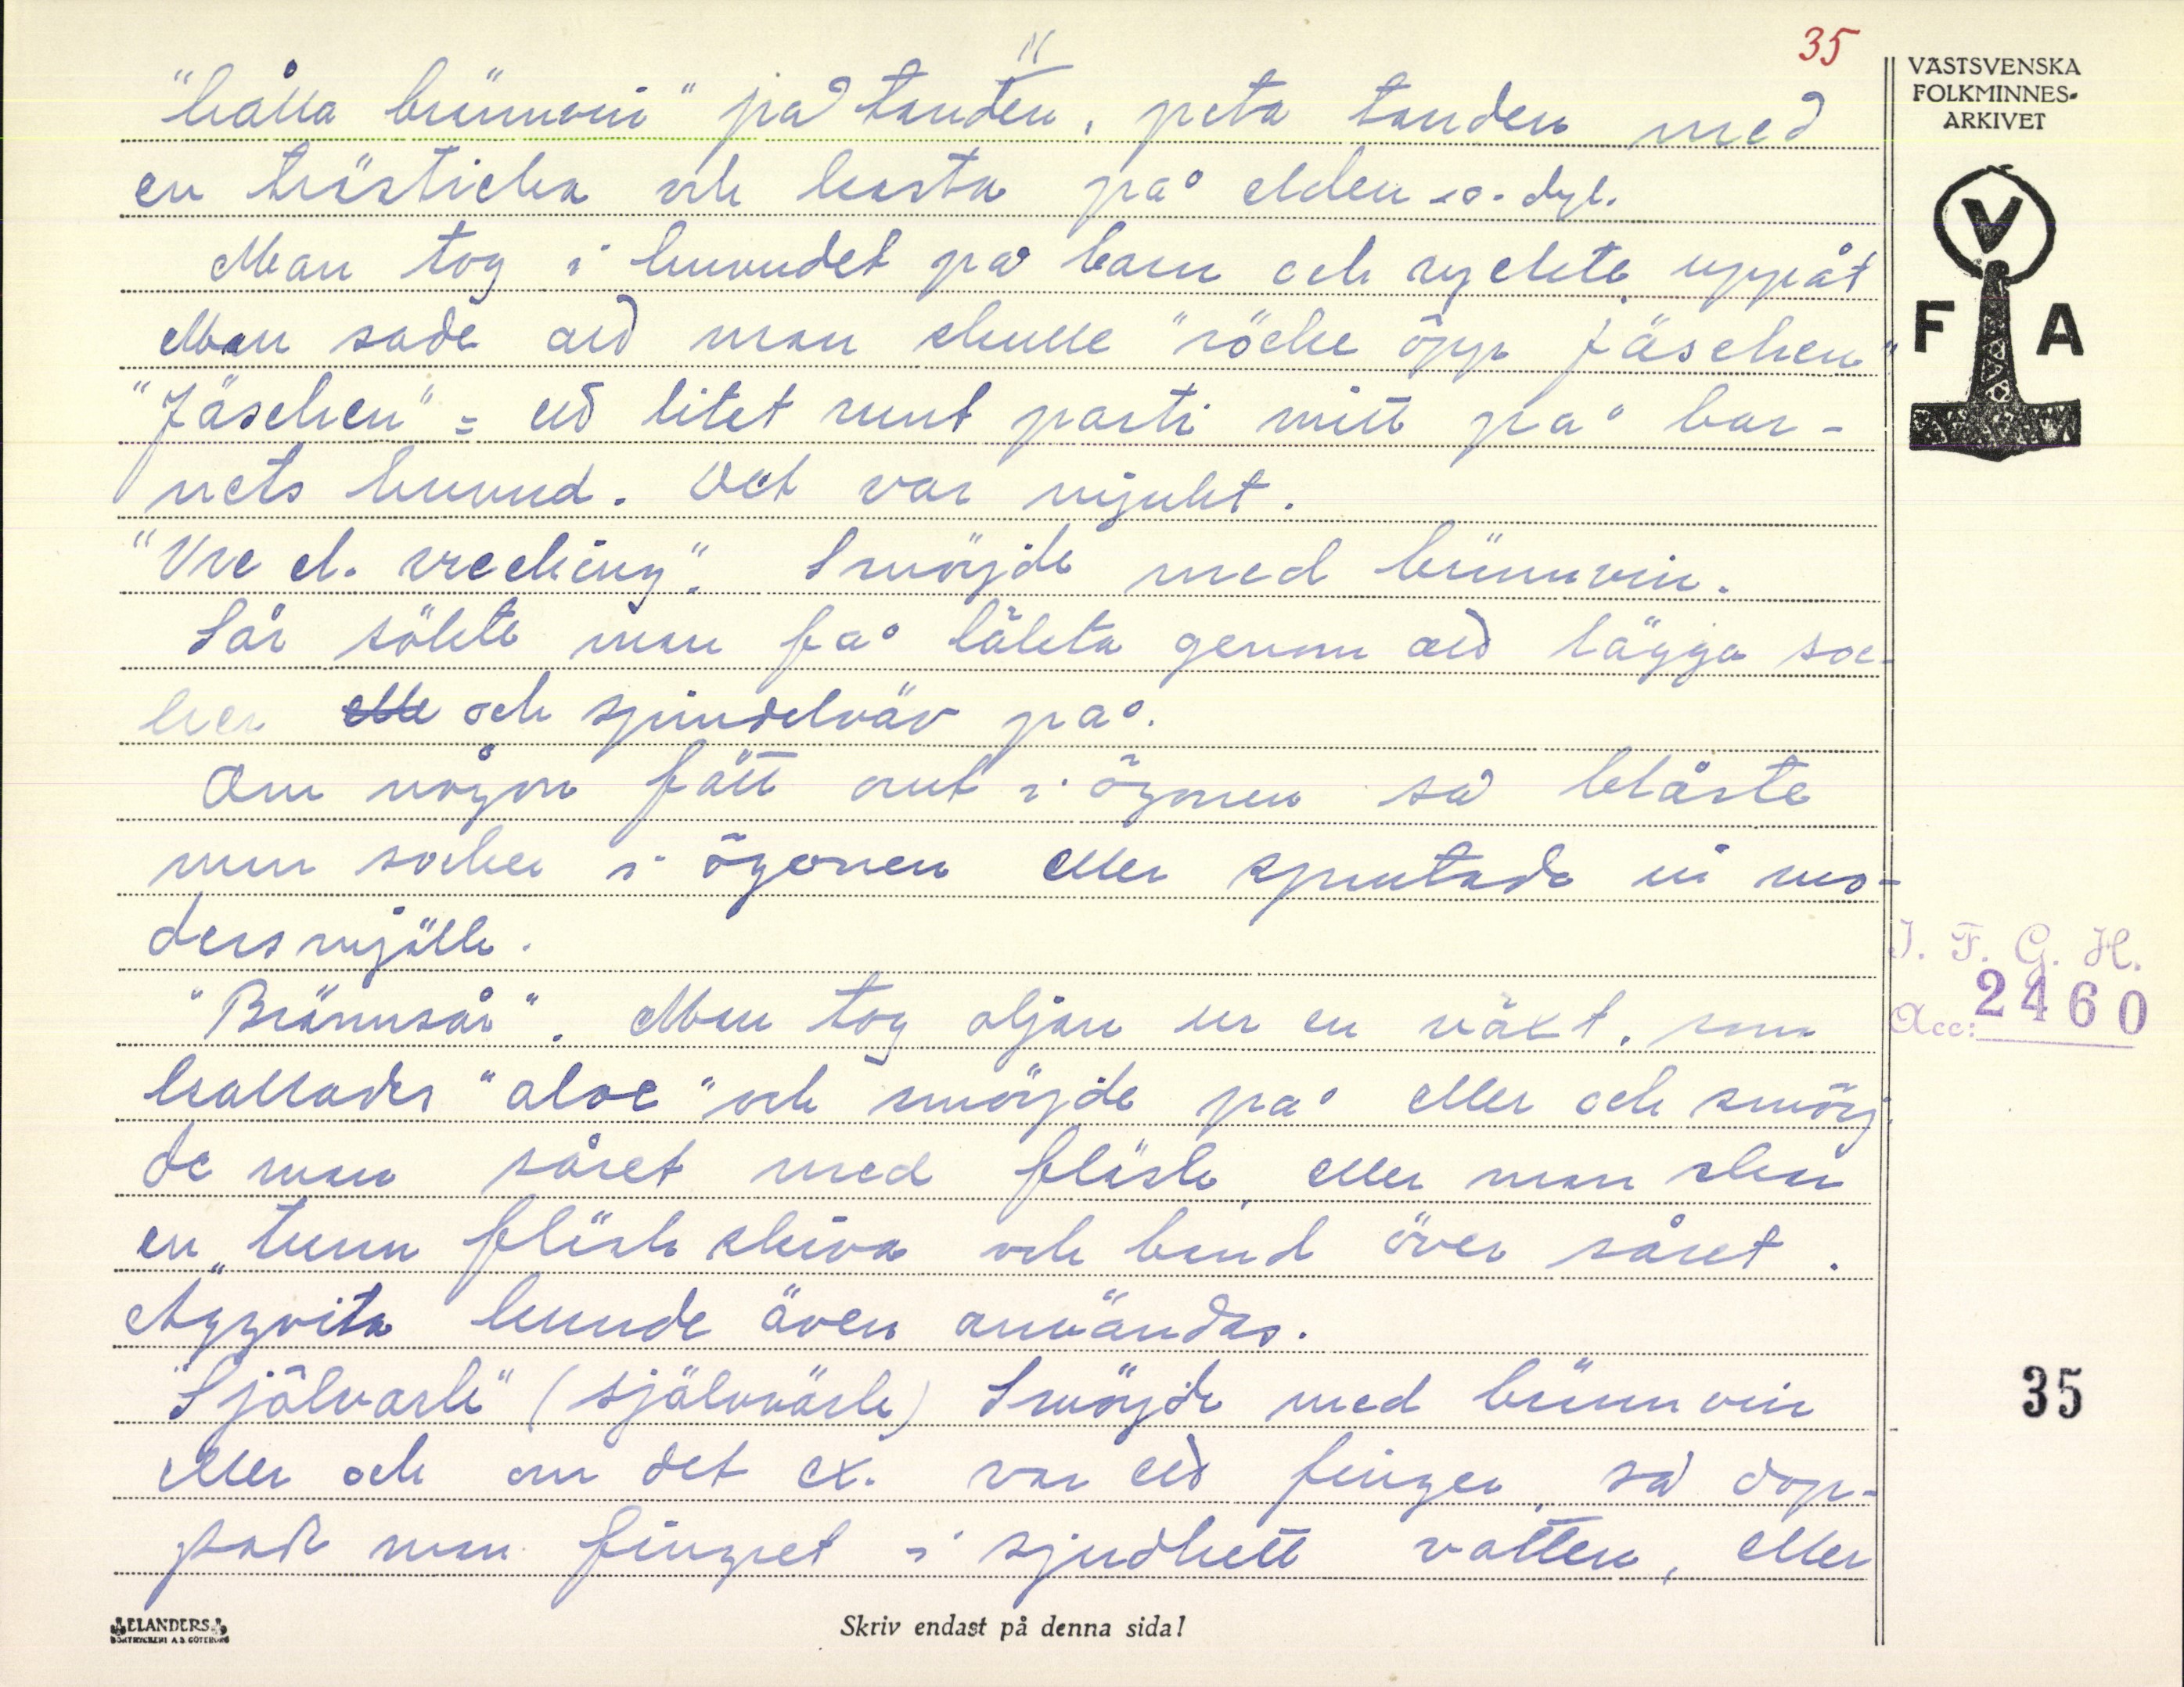 35
"hålla brännvin" på tanden, peta tanden med
en trästicka och kasta på elden o. dyl.
Man tog i huvudet på barn och ryckte uppåt
Man sade att man skulle "röcke öpp jäsehen"
"Jäsehen" = ett litet runt parti mitt på bar-
nets huvud. Det var mjukt.
"Vre el. vrecking". Smörjde med brännvin.
Sår sökte man få läkta genom att lägga soc-
ker och spindelväv på.
Om någon fått ont i ögonen så blåste
man socker i ögonen eller sprutade in mo-
dersmjölk.
"Brännsår". Man tog oljan ur en växt, som
kallades "aloe" och smörjde på eller och smörj-
de man såret med fläsk, eller man skar
en tunn fläskskiva och band över såret.
Äggvita kunde även användas.
"Sjölvark" (självvärk) Smörjde med brännvin
eller och om det ex. var ett finger, så dop-
pade man fingret i sjudhett vatten, eller
VÄSTSVENSKA
FOLKMINNES-
ARKIVET
V
F A
I. F. G. H.
Acc: 2460
35
ELANDERS
BOKTRYCKERI A.B. GÖTEBORG
Skriv endast på denna sida!